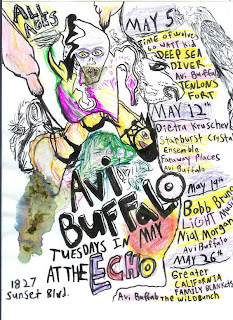 ALL
AGES
MAY 5th
Time of wolves
60 watt kid
DEEP SEA
DIVER
Avi Buffalo
TENLONS
FORT
MAY 12th
Dietra Kruschev
Starburst Crystal
Ensemble
Faraway Places
Avi Buffalo
May 19th
Bobb Bruno
LiGHT
Nial Morgan
Avi Buffalo
MAY 26th
Greater
CALIFORNIA
FAMILY BLANKETS
Avi Buffalo THE WiLD BUNCH
AVi
BUFFALO
TUESDAYS IN
MAY
AT THE ECHO
1827
Sunset Blvd.